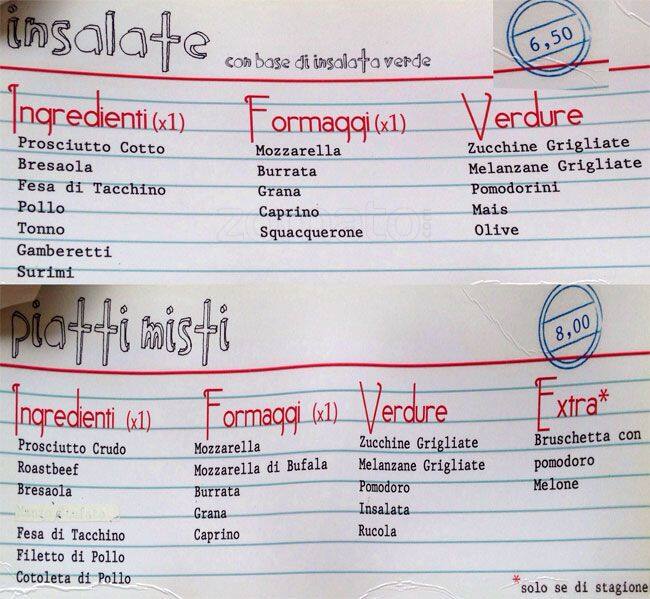 insalate con base di insalata verde
6,50
Ingredienti (x1)
Prosciutto Cotto
Bresaola
Fesa di Tacchino
Pollo
Tonno
Gamberetti
Surimi
Formaggi (x1)
Mozzarella
Burrata
Grana
Caprino
Squacquerone
Verdure
Zucchine Grigliate
Melanzane Grigliate
Pomodorini
Mais
Olive
zomato
piatti misti
8,00
Ingredienti (x1)
Prosciutto Crudo
Roastbeef
Bresaola
Fesa di Tacchino
Filetto di Pollo
Cotoleta di Pollo
Formaggi (x1)
Mozzarella
Mozzarella di Bufala
Burrata
Grana
Caprino
Verdure
Zucchine Grigliate
Melanzane Grigliate
Pomodoro
Insalata
Rucola
Extra*
Bruschetta con
pomodoro
Melone
*solo se di stagione